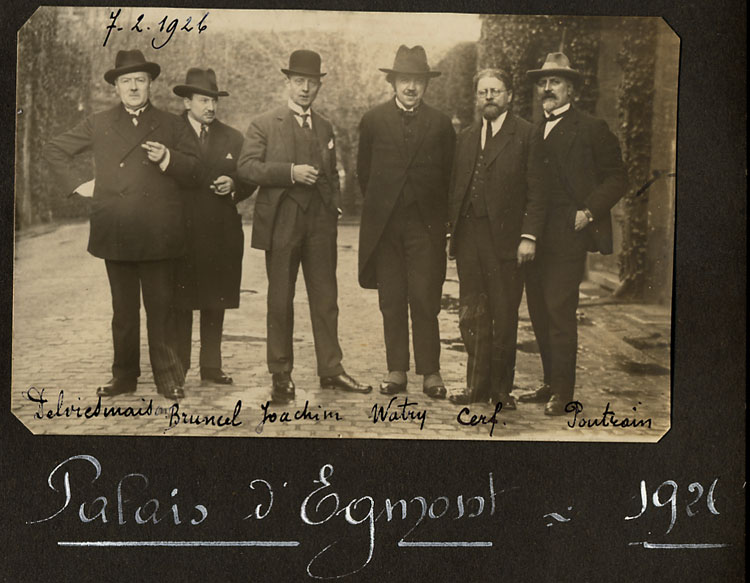 7-2.1926
Delviesmaison Bruncel Joachim Watry Cerf. Poutrain
Palais d'Egmont - 1926